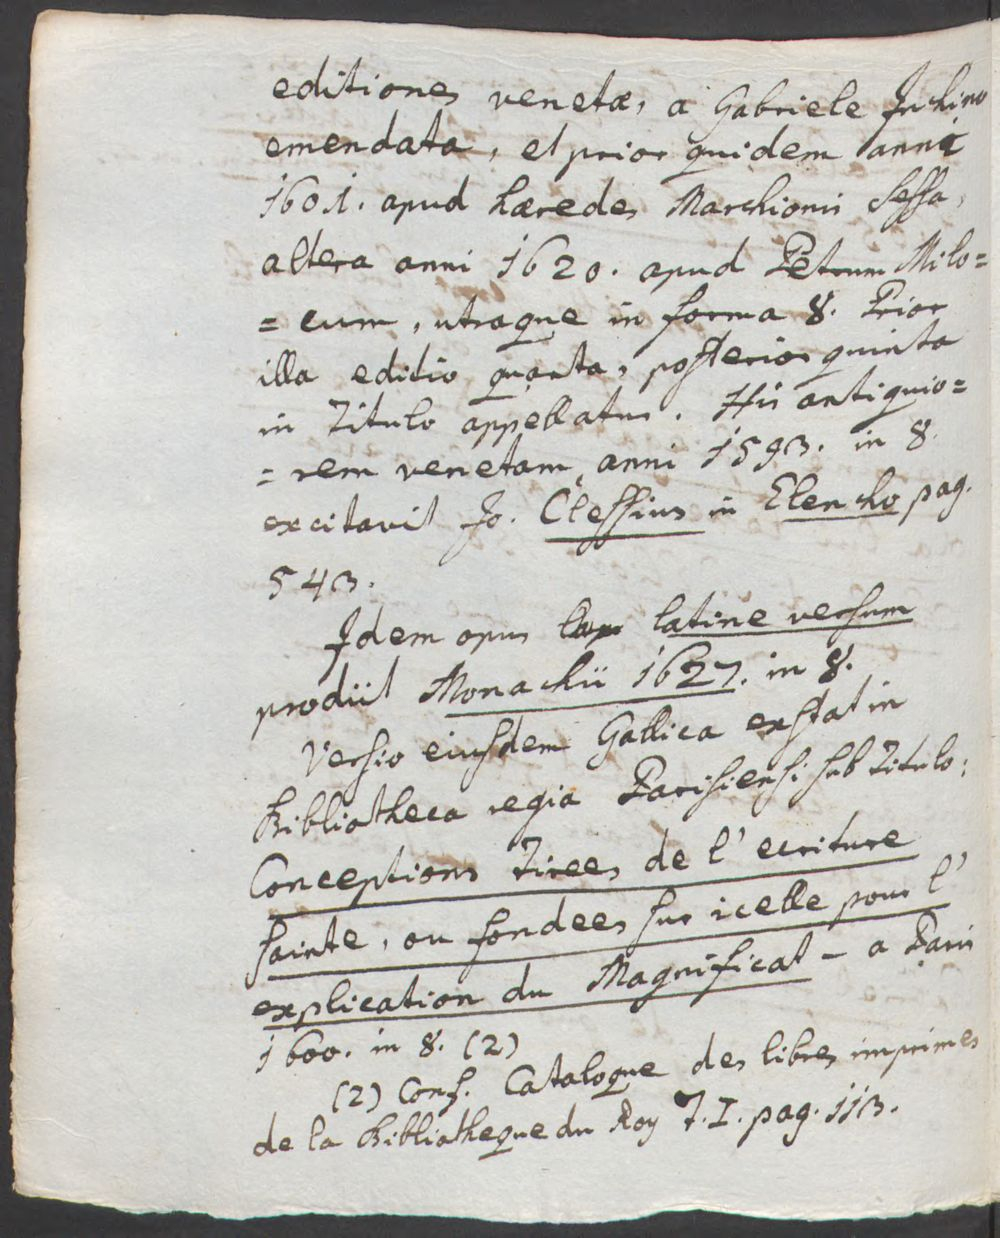 editiones venetæ, a Gabriele Inchino
emendata, et prior quidem anni
1601. apud hæredes Marchionis Sessa,
altera anni 1620. apud Petrum Milo=
=cum, utraque in forma 8. Prior
illa editio quarta, posterior quinta
in Titulo appellatur. His antiquio=
=rem venetam anni 1593. in 8.
excitavit Jo. Clessius in Elencho pag.
543.
Idem opus latine versum
prodiit Monachii 1627. in 8.
Versio eiusdem Gallica exstat in
Bibliotheca regia Parisiensi sub Titulo:
Conceptions Tirees de l' ecriture
sainte, ou fondees sur icelle pour l'
explication du Magnificat - a Paris
1600. in 8. (2)
(2) Conf. Catalogue des libres imprimes
de la Bibliatheque du Roy T. I. pag. 113.